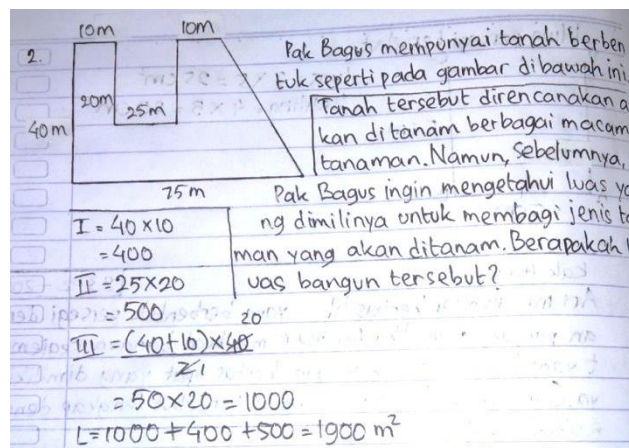 10m 10m
2. Pak Bagus mempunyai tanah berben
tuk seperti pada gambar dibawah ini.
20m 25m Tanah tersebut direncanakan a
40m kan ditanam berbagai macam
tanaman. Namun, Sebelumnya,
75m Pak Bagus ingin mengetahui luas ya
I = 40 x 10 ng dimilinya untuk membagi jenis ta
= 400 man yang akan ditanam. Berapakah l
II = 25 x 20 uas bangun tersebut?
= 500
III = (40+10) x 40 20
2 1
= 50 x 20 = 1000
L = 1000 + 400 + 500 = 1900 m²